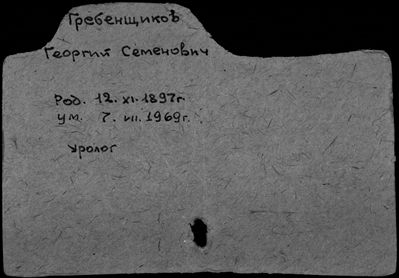 Гребенщиков
Георгий Семенович
Род. 12. XI. 1897г.
ум. 7. III. 1969г.
уролог